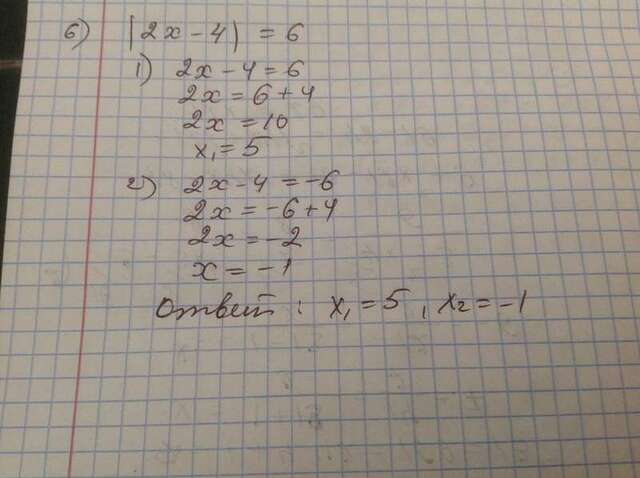 б) |2x - 4| = 6
1) 2x - 4 = 6
2x = 6 + 4
2x = 10
x₁ = 5
2) 2x - 4 = -6
2x = -6 + 4
2x = -2
x = -1
Ответ: x₁ = 5, x₂ = -1